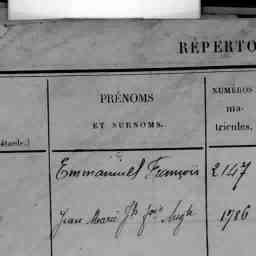 RÉPERTO
PRÉNOMS
ET SURNOMS.
NUMÉROS
ma-
tricules.
Emmanuel François 2147
Jean Marie Jh 1786